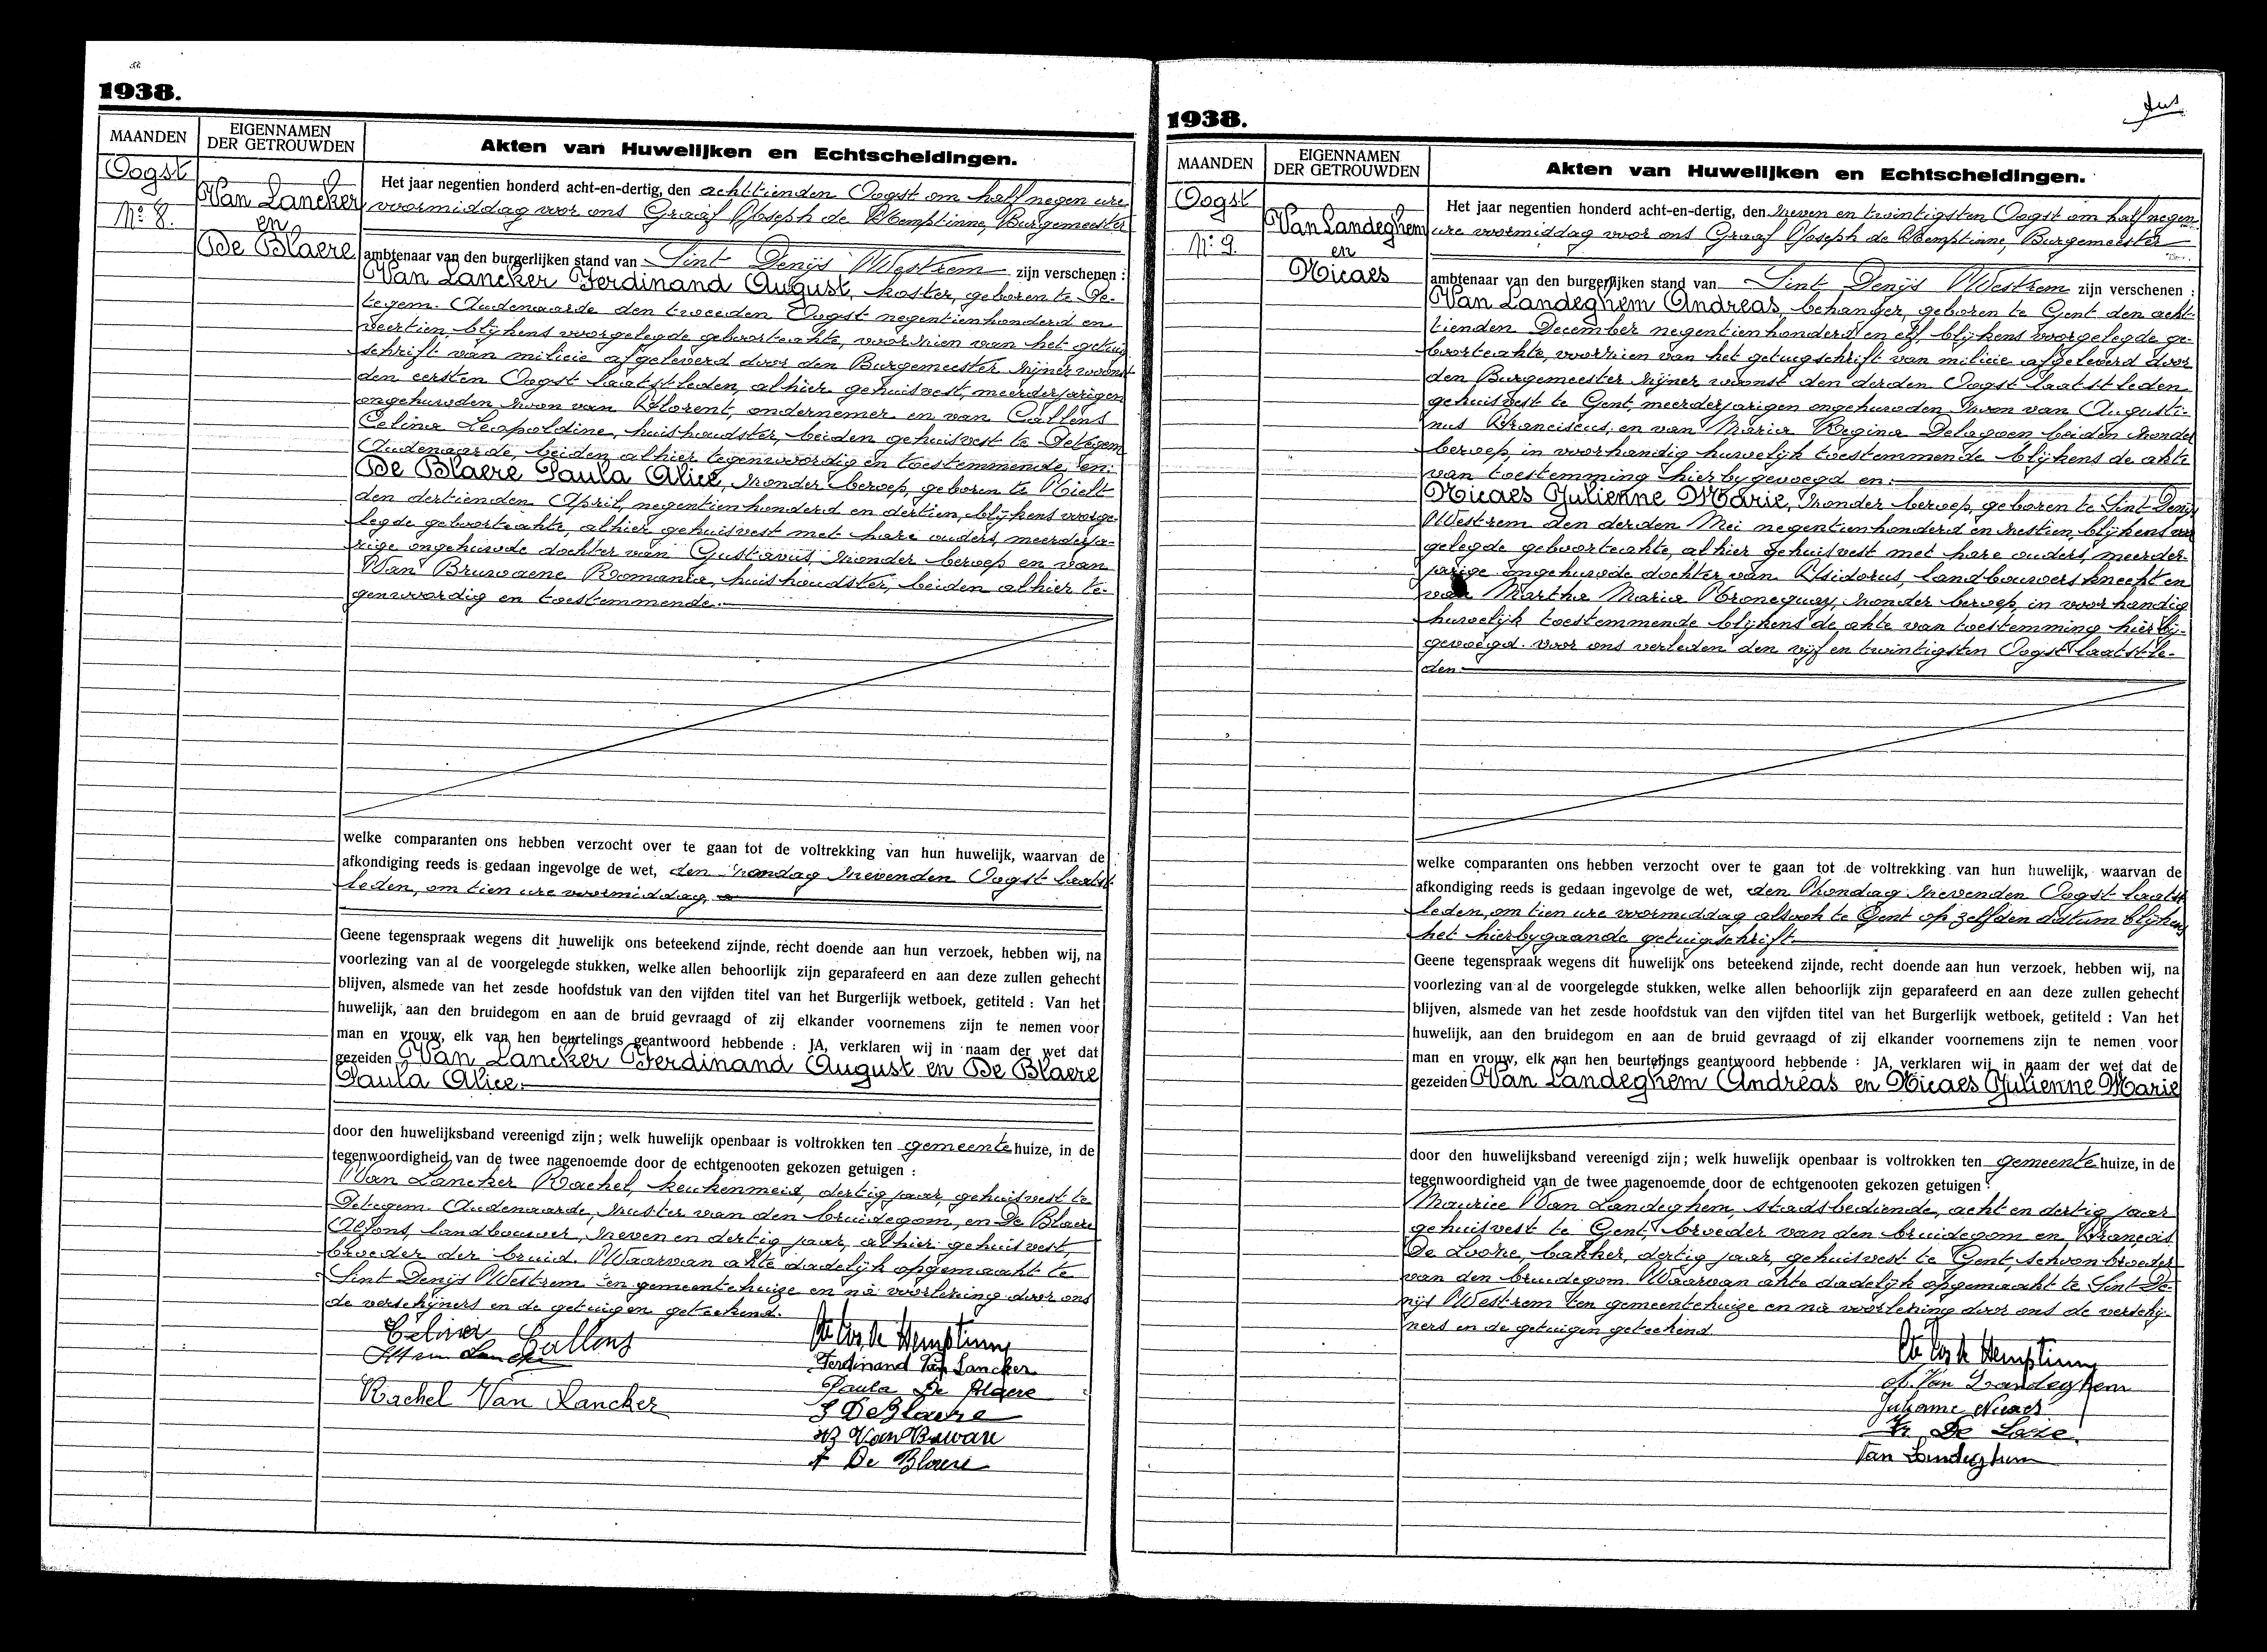 1938.
MAANDEN
EIGENNAMEN
DER GETROUWDEN
Akten van Huwelijken en Echtscheidingen.
Oogst
No 8.
Van Lancker
en
De Blaere
Het jaar negentien honderd acht-en-dertig, den achttienden Oogst om half negen ure
voormiddag voor ons Graaf Joseph de Hemptinne, Burgemeester
ambtenaar van den burgerlijken stand van Sint Denijs Westrem zijn verschenen :
Van Lancker Ferdinand August, koster, geboren te De-
tegem-Audenaarde den tweeden Oogst negentienhonderd en
veertien, blijkens voorgelegde geboorteakte, voorzien van het getuig
schrift van milicie afgeleverd door den Burgemeester zijner woonst
den eersten Oogst laatstleden, alhier gehuisvest, meerderjarigen
ongehuwden zoon van Florent, ondernemer en van Callens
Celina Leopoldine, huishoudster, beiden gehuisvest te Detegem
Audenaarde, beiden alhier tegenwoordig en toestemmende, en:
De Blaere Paula Alice, zonder beroep, geboren te Tielt
den dertienden April, negentienhonderd en dertien, blijkens voorge-
legde geboorteakte, alhier gehuisvest met hare ouders, meerderja-
rige ongehuwde dochter van Gustavus, zonder beroep en van
Van Bruwaene Romania, huishoudster, beiden alhier te-
genwoordig en toestemmende.
welke comparanten ons hebben verzocht over te gaan tot de voltrekking van hun huwelijk, waarvan de
afkondiging reeds is gedaan ingevolge de wet, den zondag zevenden Oogst laatst
leden, om tien ure voormiddag,
Geene tegenspraak wegens dit huwelijk ons beteekend zijnde, recht doende aan hun verzoek, hebben wij, na
voorlezing van al de voorgelegde stukken, welke allen behoorlijk zijn geparafeerd en aan deze zullen gehecht
blijven, alsmede van het zesde hoofdstuk van den vijfden titel van het Burgerlijk wetboek, getiteld : Van het
huwelijk, aan den bruidegom en aan de bruid gevraagd of zij elkander voornemens zijn te nemen voor
man en vrouw, elk van hen beurtelings geantwoord hebbende : JA, verklaren wij in naam der wet dat
gezeiden Van Lancker Ferdinand August en De Blaere
Paula Alice.
door den huwelijksband vereenigd zijn; welk huwelijk openbaar is voltrokken ten gemeentehuize, in de
tegenwoordigheid van de twee nagenoemde door de echtgenooten gekozen getuigen :
Van Lancker Rachel, keukenmeid, dertig jaar, gehuisvest te
Detegem-Audenaarde, zuster van den bruidegom, en De Blaere
Alfons, landbouwer, zeven en dertig jaar, alhier gehuisvest,
broeder der bruid. Waarvan akte dadelijk opgemaakt te
Sint Denijs Westrem ten gemeentehuize en na voorlezing door ons
de verschijners en de getuigen geteekend.
Celina Callens
Van Lancker
Rachel Van Lancker
de Hemptinne
Ferdinand Van Lancker
Paula De Blaere
G De Blaere
De Blaere
1938.
MAANDEN
EIGENNAMEN
DER GETROUWDEN
Akten van Huwelijken en Echtscheidingen.
Oogst
No 9.
Van Landeghem
en
Nicaes
Het jaar negentien honderd acht-en-dertig, den zeven en twintigsten Oogst om half negen
ure voormiddag voor ons Graaf Joseph de Hemptinne, Burgemeester
ambtenaar van den burgerlijken stand van Sint Denijs Westrem zijn verschenen :
Van Landeghem Andreas, behanger, geboren te Gent den acht-
tienden December negentienhonderd en elf, blijkens voorgelegde ge-
boorteakte, voorzien van het getuigschrift van milicie afgeleverd door
den Burgemeester zijner woonst den derden Oogst laatstleden
gehuisvest te Gent, meerderjarigen ongehuwden zoon van Augusti-
nus Franciscus, en van Maria Regina Delagoen beiden zonder
beroep, in voorhandig huwelijk toestemmende blijkens de akte
van toestemming hierbygevoegd en:
Nicaes Julienne Marie, zonder beroep, geboren te Sint Denijs
Westrem den derden Mei negentienhonderd en zestien, blijkens voor
gelegde geboorteakte, alhier gehuisvest met hare ouders, meerder-
jarige ongehuwde dochter van Isidorus, landbouwersknecht en
van Martha Maria Fronequay, zonder beroep, in voorhandig
huwelijk toestemmende blijkens de akte van toestemming hierbij-
gevoegd voor ons verleden den vijf en twintigsten Oogst laatstle-
den
welke comparanten ons hebben verzocht over te gaan tot de voltrekking van hun huwelijk, waarvan de
afkondiging reeds is gedaan ingevolge de wet, den zondag zevenden Oogst laatst
leden, om tien ure voormiddag alsook te Gent op zelfden datum blijkens
het hierbygaande getuigschrift.
Geene tegenspraak wegens dit huwelijk ons beteekend zijnde, recht doende aan hun verzoek, hebben wij, na
voorlezing van al de voorgelegde stukken, welke allen behoorlijk zijn geparafeerd en aan deze zullen gehecht
blijven, alsmede van het zesde hoofdstuk van den vijfden titel van het Burgerlijk wetboek, getiteld : Van het
huwelijk, aan den bruidegom en aan de bruid gevraagd of zij elkander voornemens zijn te nemen voor
man en vrouw, elk van hen beurtelings geantwoord hebbende : JA, verklaren wij in naam der wet dat de
gezeiden Van Landeghem Andreas en Nicaes Julienne Marie
door den huwelijksband vereenigd zijn; welk huwelijk openbaar is voltrokken ten gemeentehuize, in de
tegenwoordigheid van de twee nagenoemde door de echtgenooten gekozen getuigen :
Maurice Van Landeghem, stadsbediende, acht en dertig jaar
gehuisvest te Gent, broeder van den bruidegom en François
De Looze, bakker, dertig jaar, gehuisvest te Gent, schoonbroeder
van den bruidegom. Waarvan akte dadelijk opgemaakt te Sint De-
nijs Westrem ten gemeentehuize en na voorlezing door ons de verschij-
ners en de getuigen geteekend.
de Hemptinne
Van Landeghem
Nicaes
Fr De Looze
Van Landeghem